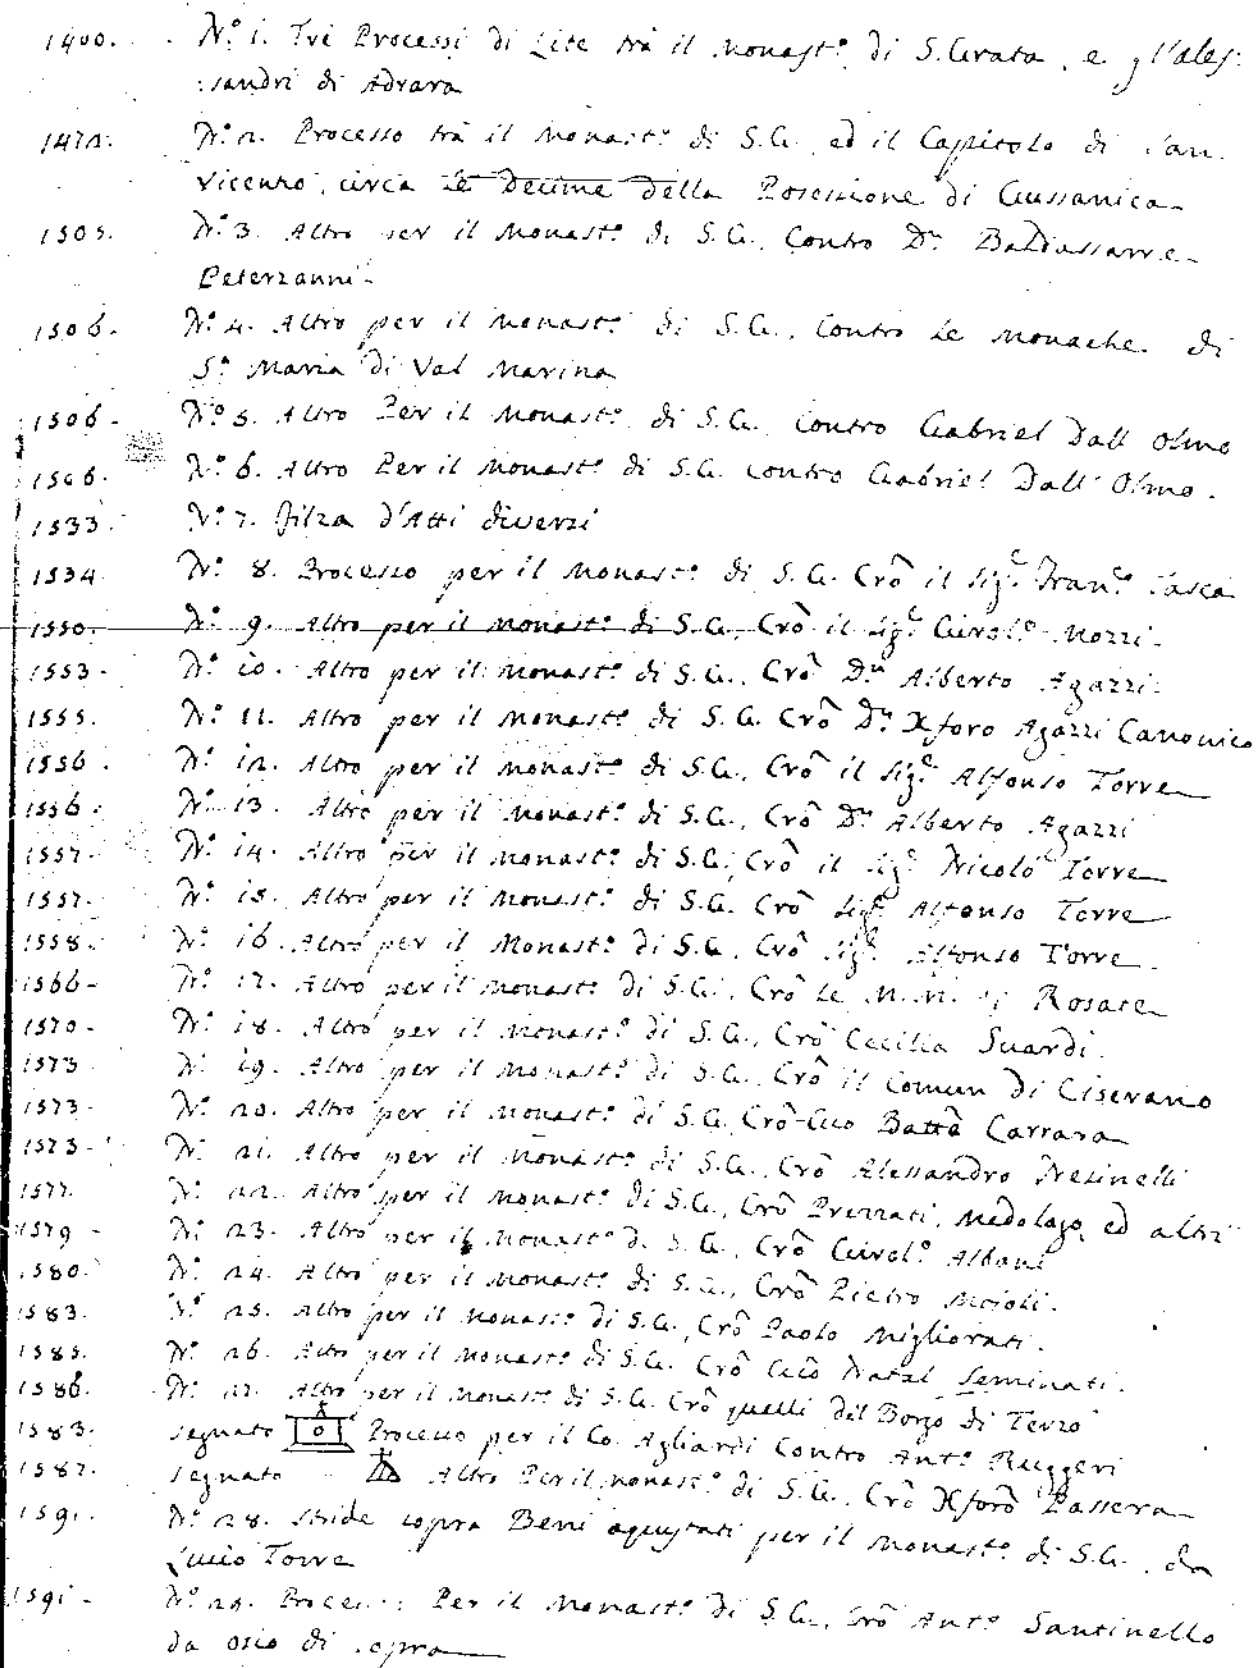 1400. N.° 1. Tre Processi di Lite trà il Monast.° di S. Grata, e gl'Ales:
:sandri di Adrara
1472. N.° 2. Processo trà il Monast.° di S. G. ed il Capitolo di San
Vicenzo, circa le Decime della Posessione di Gussanica
1505. N.° 3. Altro per il Monast.° di S. G., Contro Dn. Baldassarre
Peterzanni
1506. N.° 4. Altro per il Monast.° di S. G., Contro Le Monache di
S.a Maria di Val Marina
1506 N.° 5. Altro Per il Monast.° di S. G. Contro Gabriel Dall Olmo
1506. N.° 6. Altro Per il Monast.° di S. G. Contro Gabriel Dall' Olmo.
1533. N.° 7. filza d'Atti diversi
1534 N.° 8. Processo per il Monast.° di S. G. Crô il Sig.r Fran.co Tasca
1550. N.° 9. Altro per il Monast.° di S. G., Crô il Sig.r Girol.° Mozzi.
1553. N.° 10. Altro per il Monast.° di S. G., Crô Dn. Alberto Agazzi.
1555. N.° 11. Altro per il Monast.° di S. G. Crô Dn. Xforo Agazzi Canonico
1556. N.° 12. Altro per il Monast.° di S. G., Crô il Sig.r Alfonso Torre
1556. N.° 13. Altro per il Monast.° di S. G., Crô Dn. Alberto Agazzi
1557. N.° 14. Altro per il Monast.° di S. G., Crô il Sig.r Nicolò Torre
1557. N.° 15. Altro per il Monast.° di S. G. Crô Sig.r Alfonso Torre
1558. N.° 16. Altro per il Monast.° di S. G. Crô Sig.r Alfonso Torre.
1566 N.° 17. Altro per il Monast.° di S. G., Crô Le M. M. di Rosate
1570. N.° 18. Altro per il Monast.° di S. G., Crô Cecilia Suardi.
1573 N.° 19. Altro per il Monast.° di S. G. Crô il Comun di Ciserano
1573. N.° 20. Altro per il Monast.° di S. G. Crô Gio Battâ Carrara
1573. N.° 21. Altro per il Monast.° di S. G., Crô Alessandro Nesinelli
1577. N.° 22. Altro per il Monast.° di S. G., Crô Prezzati, Medolago, ed altri
1579 N.° 23. Altro per il Monast.° di S. G., Crô Girol.° Albani
1580. N.° 24. Altro per il Monast.° di S. G., Crô Pietro Moioli.
1583. N.° 25. Altro per il Monast.° di S. G., Crô Paolo Migliorati.
1585. N.° 26. Altro per il Monast.° di S. G. Crô Natal Seminati.
1586. N.° 27. Altro per il Monast.° di S. G. Crô quelli del Borgo di Terzo
1583. segnato Processo per il Co. Agliardi Contro Ant.° Ruggeri
1587. segnato Altro Per il monast.° di S. G., Crô Xforô Passera
1591. N.° 28. Stride sopra Beni aquistati per il Monast.° di S. G., da
Lucio Torre
1591 N.° 29. Processo Per il Monast.° di S. G., Crô Ant.° Santinello
da Osio di sopra